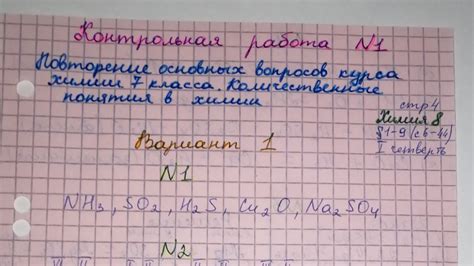 Контрольная работа N1
Повторение основных вопросов курса
химии 7 класса. Количественные
понятия в химии
стр4
Химия 8
§1-9 (с6-46)
I четверть
Вариант 1
N1
NH3, SO2, H2S, Cu2O, Na2SO4
N2